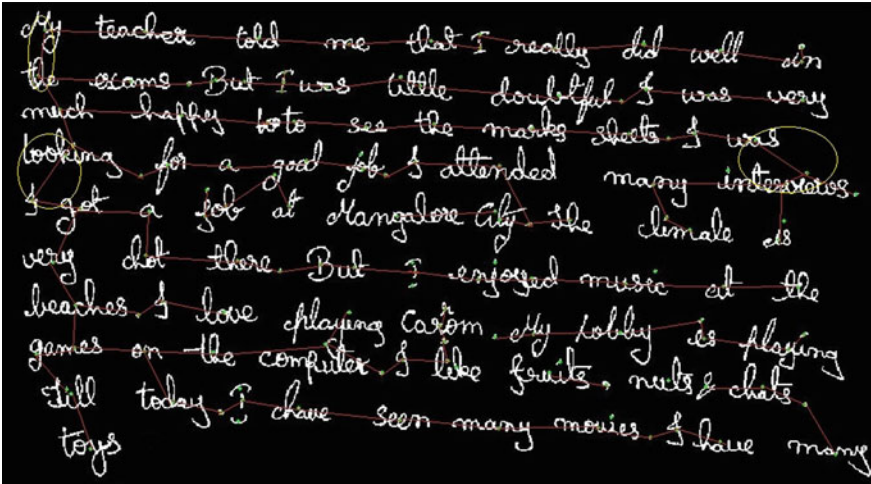 My teacher told me that I really did well in
the exams. But I was little doubtful. I was very
much happy to to see the marks sheets. I was
looking for a good job. I attended many interviews.
I got a job at Mangalore City. The climale is
very hot there. But I enjoyed music at the
beaches. I love playing Carom. My hobby is playing
games on the computer. I like fruits, nuts & chats
Till today I have seen many movies. I have many
toys